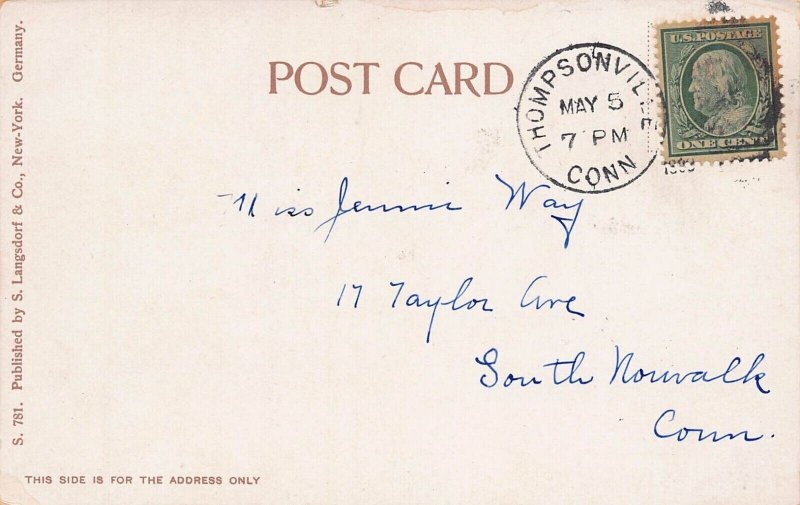 POST CARD
THOMPSONVILLE
MAY 5
7 PM
CONN
U.S. POSTAGE
ONE CENT
Miss Jennie Way
17 Taylor Ave
South Norwalk
Conn.
S. 781. Published by S. Langsdorf & Co., New-York. Germany.
THIS SIDE IS FOR THE ADDRESS ONLY